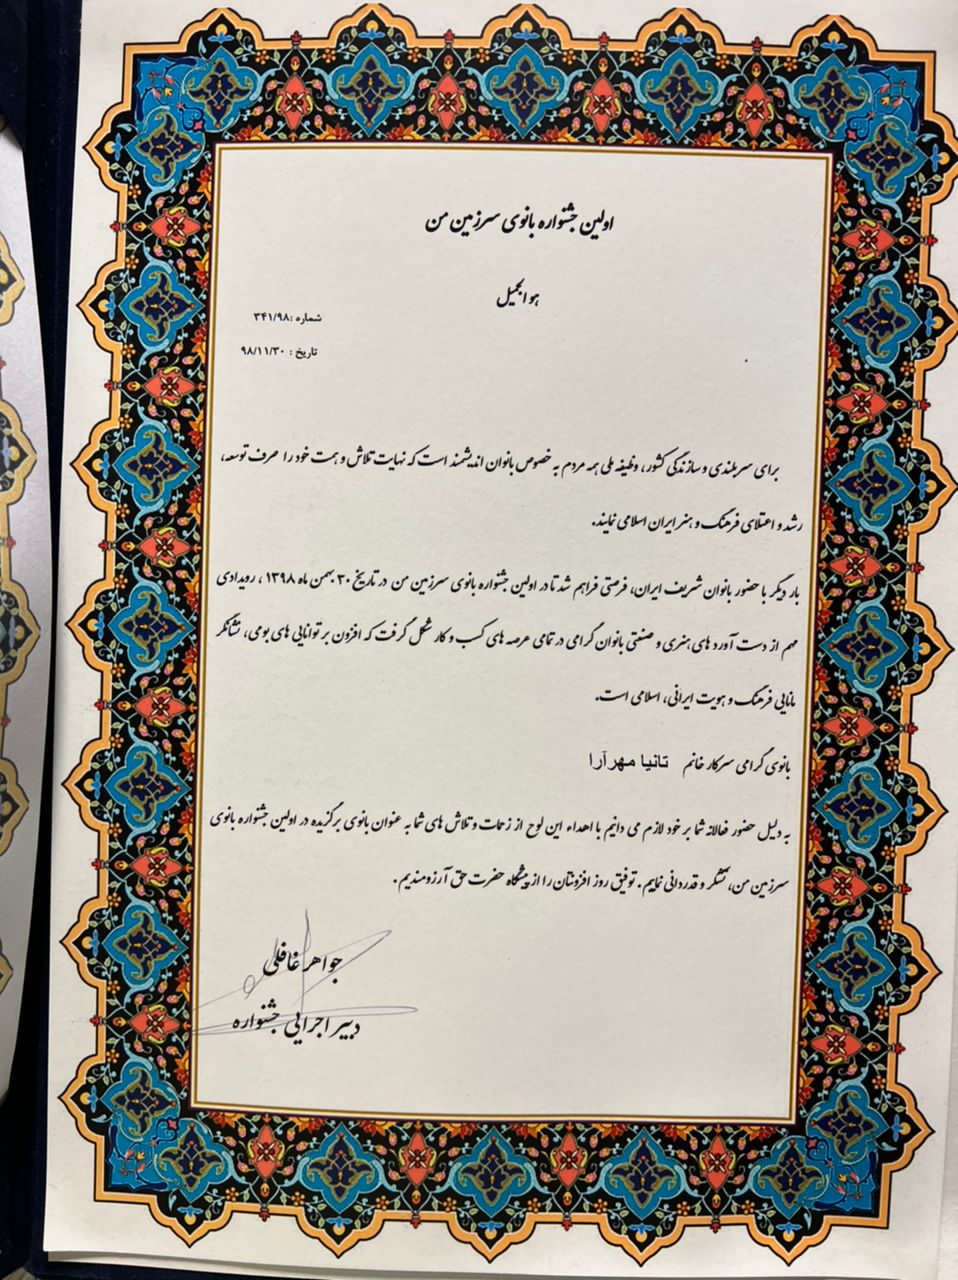 اولین جشنواره بانوی سرزمین من
هو الجمیل
شماره :۳۴۱/۹۸
تاریخ : ۹۸/۱۱/۳۰
برای سربلندی و سازندگی کشور، وظیفه ملی همه مردم به خصوص بانوان اندیشمند است که نهایت تلاش و همت خود را صرف توسعه،
رشد و اعتلای فرهنگ و هنر ایران اسلامی نمایند.
بار دیگر با حضور بانوان شریف ایران، فرصتی فراهم شد تا در اولین جشنواره بانوی سرزمین من در تاریخ ۳۰ بهمن ماه ۱۳۹۸ ، رویدادی
مهم از دست آورد های هنری و صنعتی بانوان گرامی در تمامی عرصه های کسب و کار شکل گرفت که افزون بر توانایی های بومی، نشانگر
مانایی فرهنگ و هویت ایرانی، اسلامی است.
بانوی گرامی سرکار خانم تانیا مهرآرا
به دلیل حضور فعالانه شما بر خود لازم می دانیم با اهداء این لوح از زحمات و تلاش های شما به عنوان بانوی برگزیده در اولین جشنواره بانوی
سرزمین من، تشکر و قدردانی نماییم. توفیق روز افزونتان را از پیشگاه حضرت حق آرزومندیم.
جواهر غافلی
دبیر اجرایی جشنواره